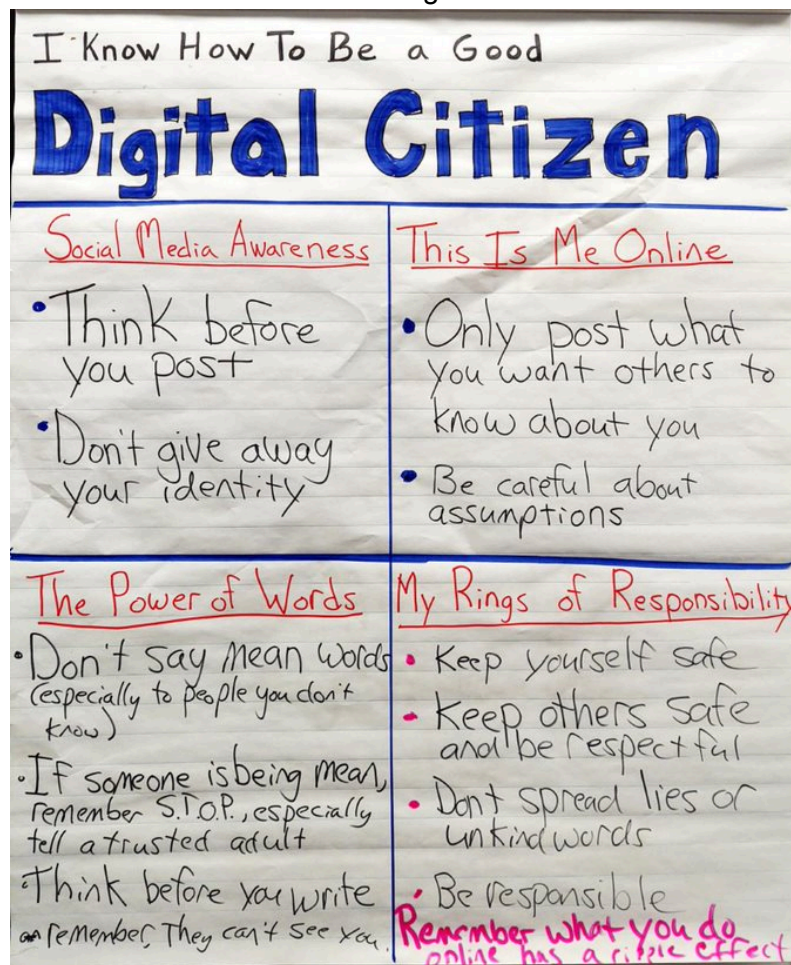 I Know How To Be a Good
Digital Citizen
Social Media Awareness
• Think before
you post
• Don't give away
your identity
This Is Me Online
• Only post what
you want others to
know about you
• Be careful about
assumptions
The Power of Words
• Don't say mean words
(especially to people you don't
know)
• If someone is being mean,
remember S.T.O.P., especially
tell a trusted adult
• Think before you write
remember, They can't see you.
My Rings of Responsibility
• Keep yourself safe
• Keep others safe
and be respectful
• Don't spread lies or
unkind words
• Be responsible
Remember what you do
online has a ripple effect